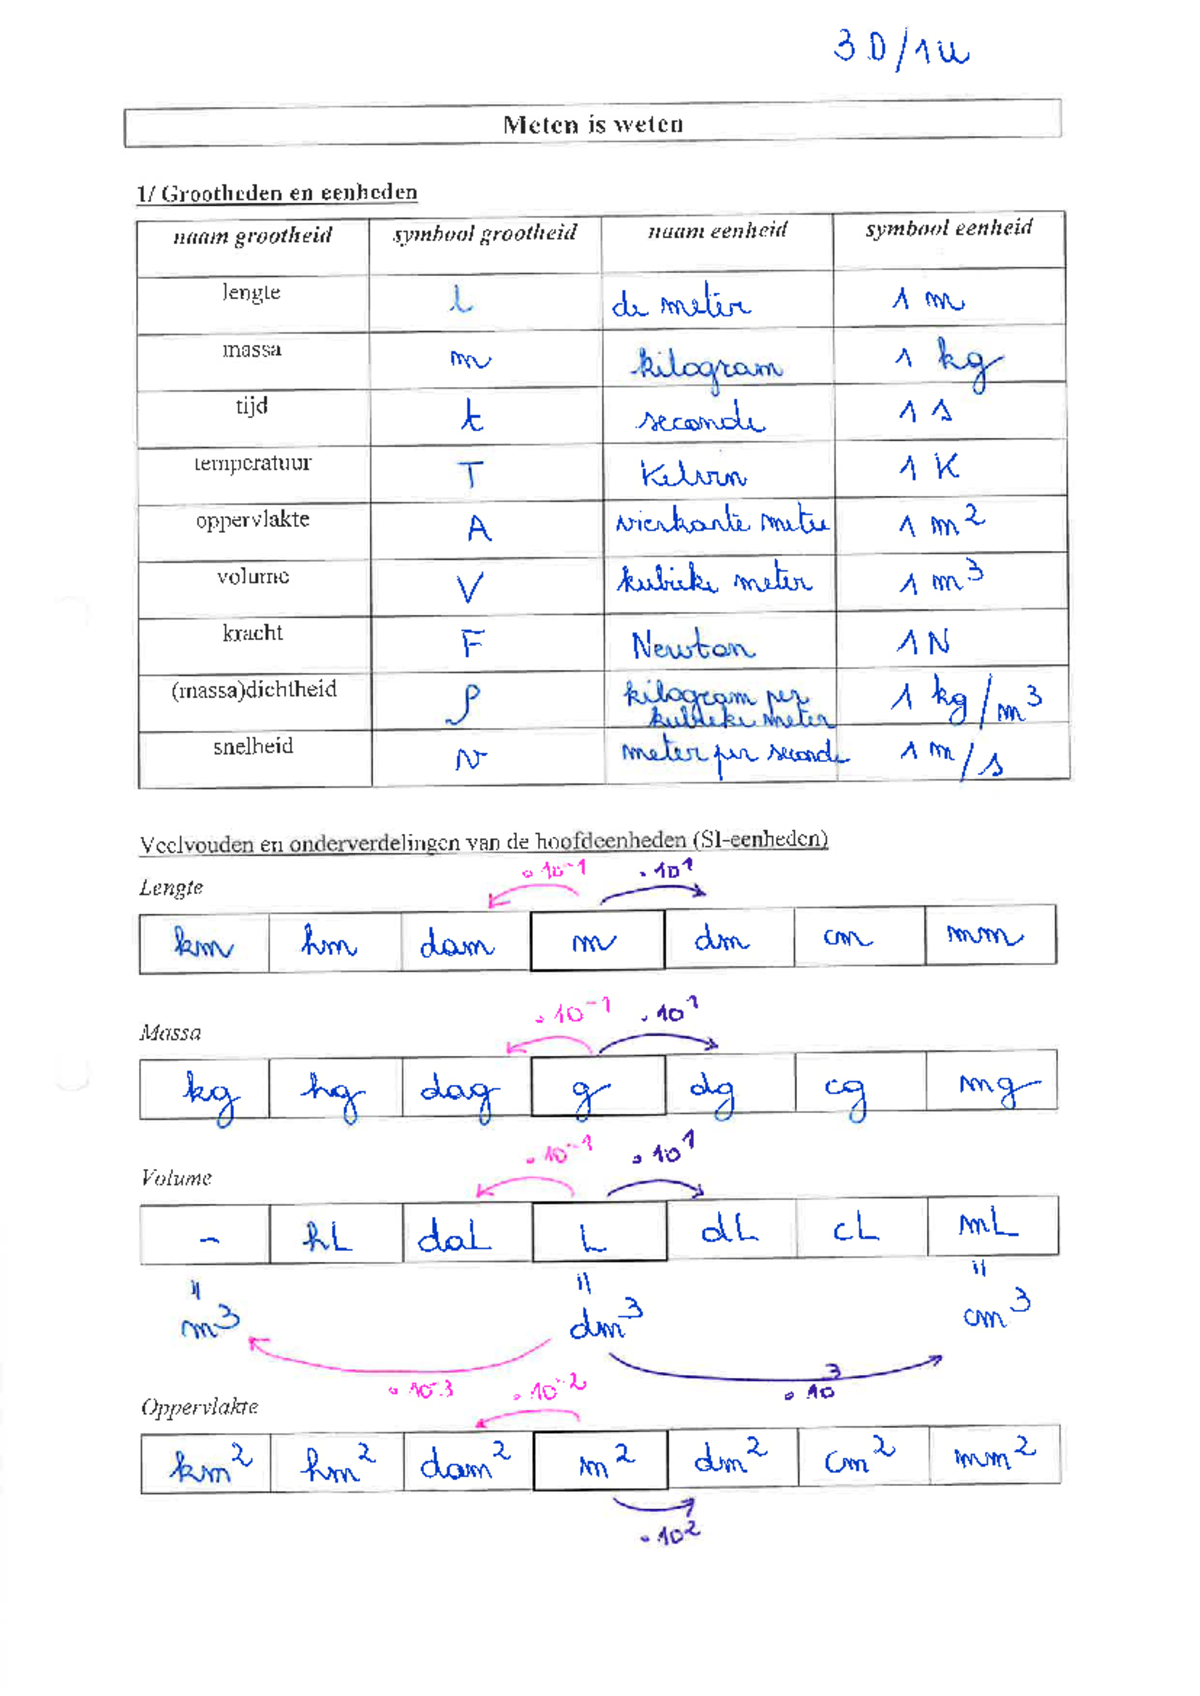 3D/1u
Meten is weten
1/ Grootheden en eenheden
naam grootheid symbool grootheid naam eenheid symbool eenheid
lengte l de meter 1 m
massa m kilogram 1 kg
tijd t seconde 1 s
temperatuur T Kelvin 1 K
oppervlakte A vierkante meter 1 m²
volume V kubieke meter 1 m³
kracht F Newton 1 N
(massa)dichtheid ρ kilogram per kubieke meter 1 kg/m³
snelheid v meter per seconde 1 m/s
Veelvouden en onderverdelingen van de hoofdeenheden (SI-eenheden)
Lengte
· 10⁻¹ · 10¹
km hm dam m dm cm mm
Massa
· 10⁻¹ · 10¹
kg hg dag g dg cg mg
Volume
· 10⁻¹ · 10¹
- hL daL L dL cL mL
= = =
m³ dm³ cm³
· 10⁻³ · 10³
Oppervlakte
· 10⁻²
km² hm² dam² m² dm² cm² mm²
· 10²